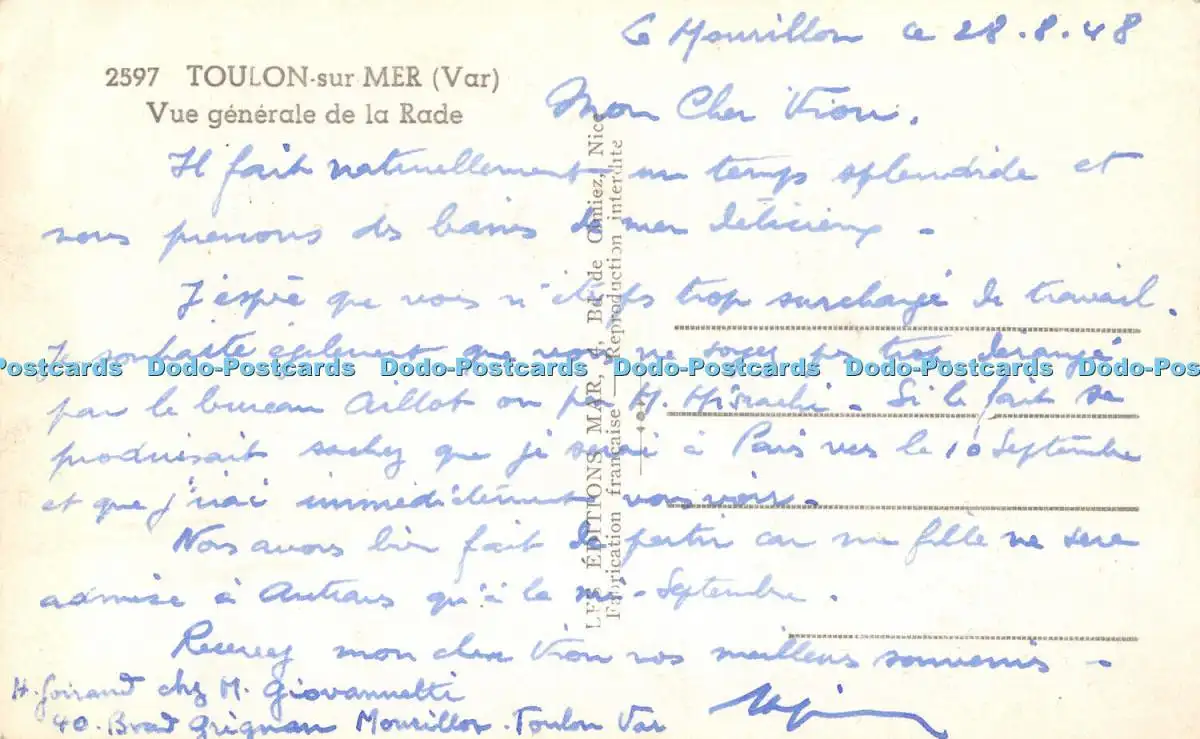 Le Mourillon ce 28.8.48
2597 TOULON-sur MER (Var)
Vue générale de la Rade
Mon Cher Vion.
Il fait naturellement un temps splendide et
nous prenons des bains de mer délicieux -
J'espère que vous n'êtes pas trop surchargé de travail.
Je souhaite également que vous ne soyez pas trop dérangé
par le bureau Aillot ou par M. Misrachi - Si le fait se
produisait sachez que je serai à Paris vers le 10 Septembre
et que j'irai immédiatement vous voir -
Nous avons bien fait de partir car ma fille ne sera
admise à Autrans qu'à la mi-Septembre.
Recevez mon cher Vion nos meilleurs souvenirs -
H. Goirand chez M. Giovannetti
40. Bvard Grignan Mourillon. Toulon Var
LES ÉDITIONS MAR, Bd de Cimiez, Nice
Fabrication française — Reproduction interdite
Dodo-Postcards Dodo-Postcards Dodo-Postcards Dodo-Postcards Dodo-Postcards Dodo-Postcards